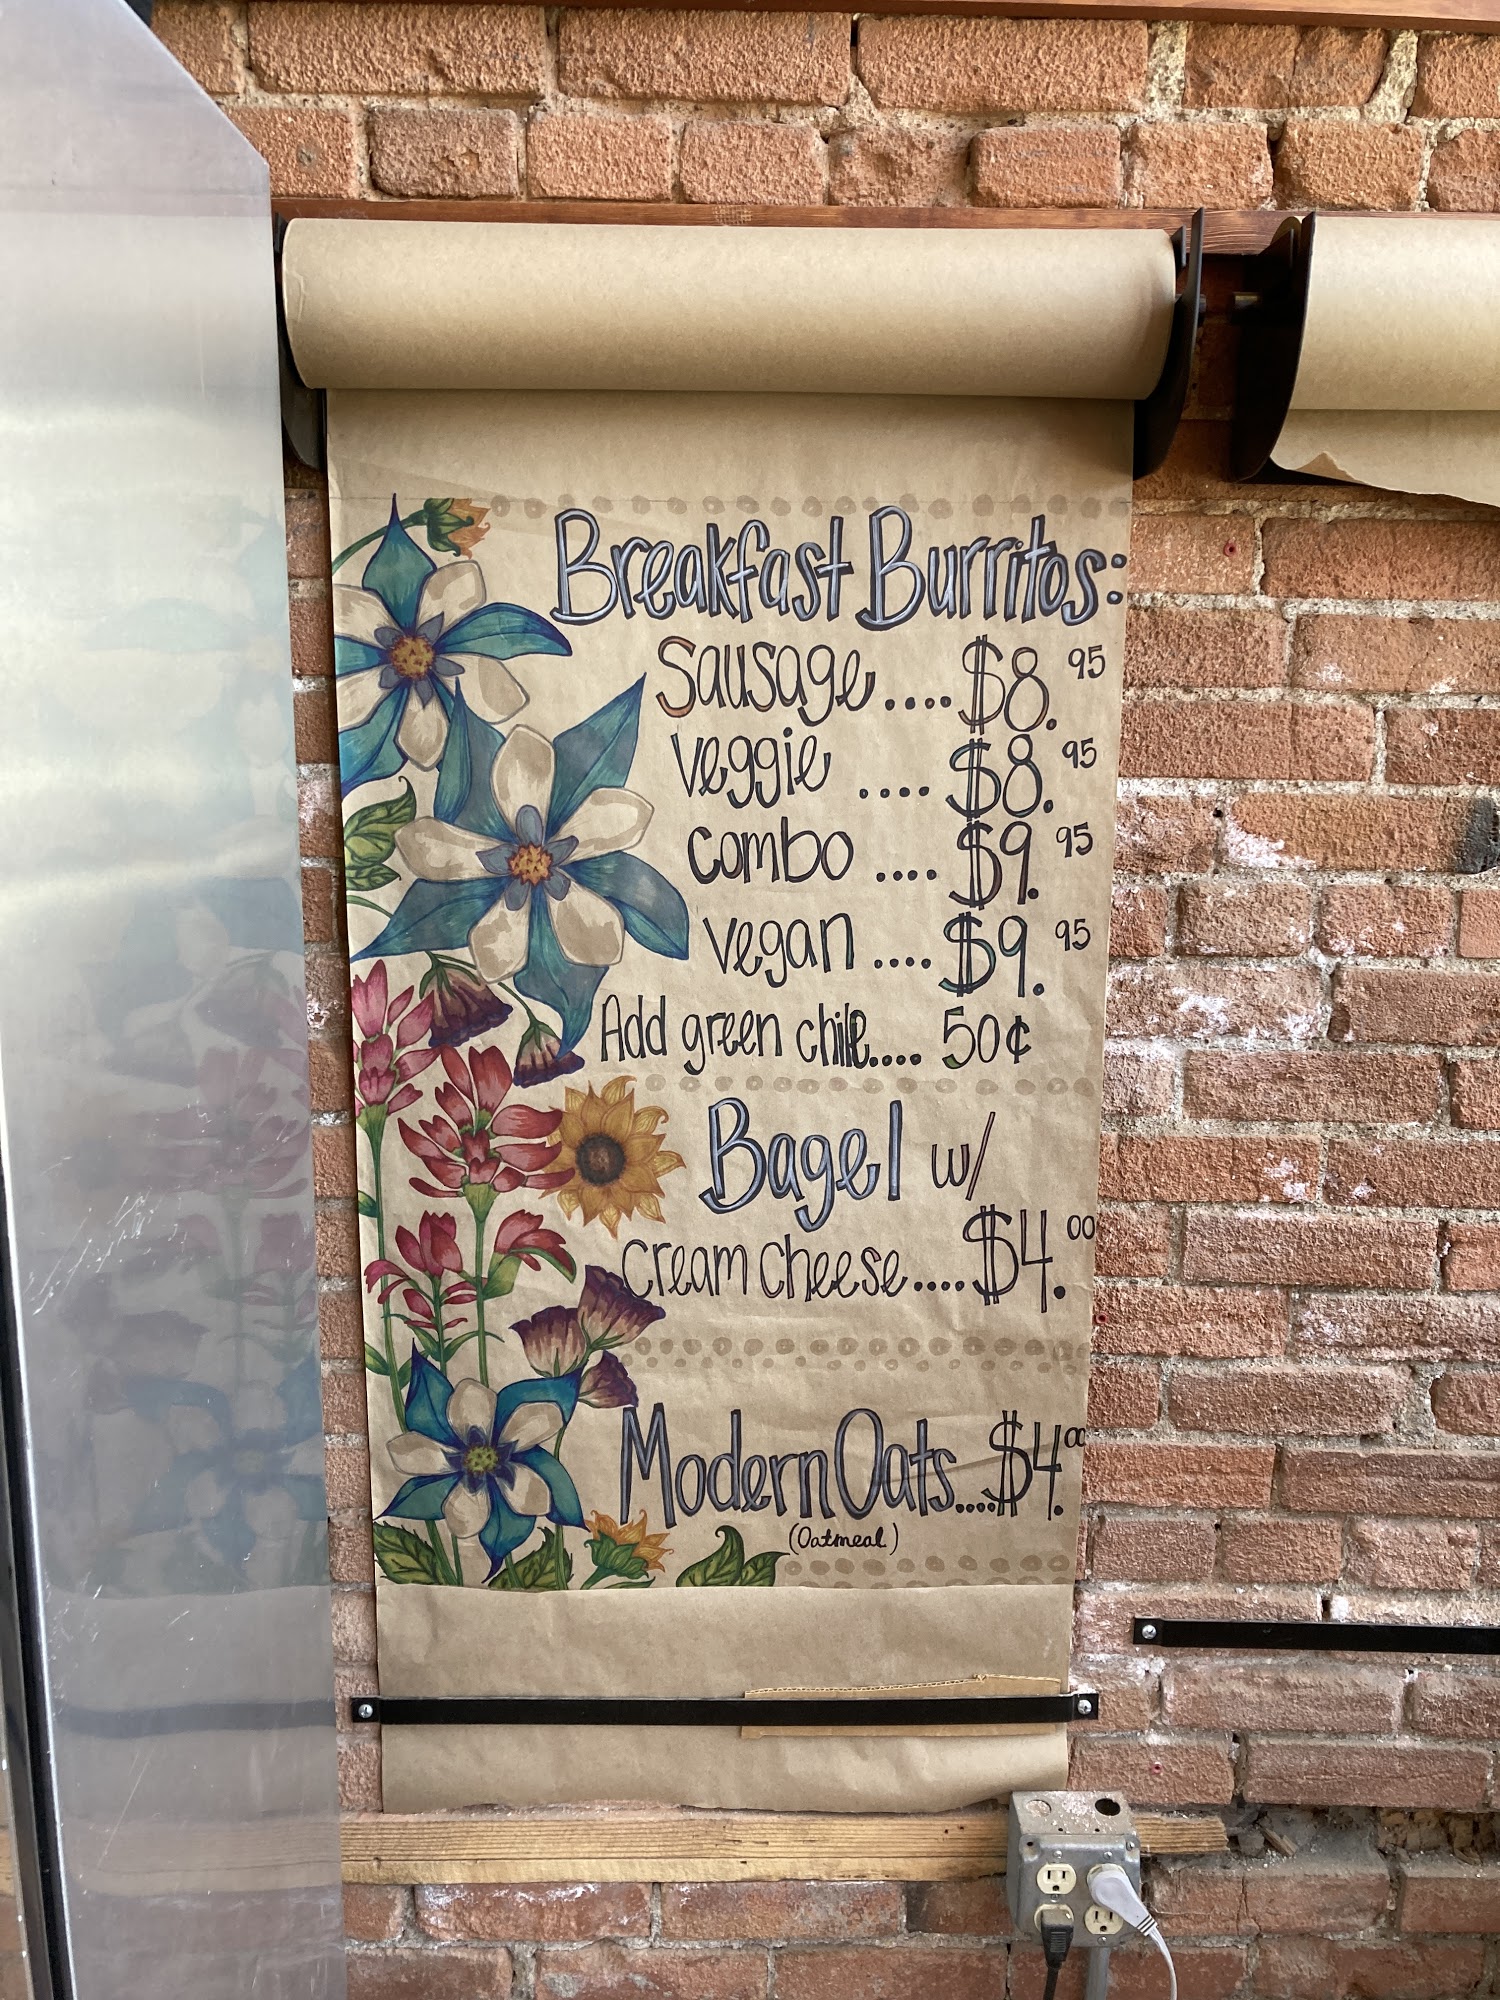 Breakfast Burritos:
Sausage....$8.95
veggie ....$8.95
combo ....$9.95
vegan ....$9.95
Add green chile.... 50¢
Bagel w/
cream cheese....$4.00
Modern Oats....$4.00
(Oatmeal)